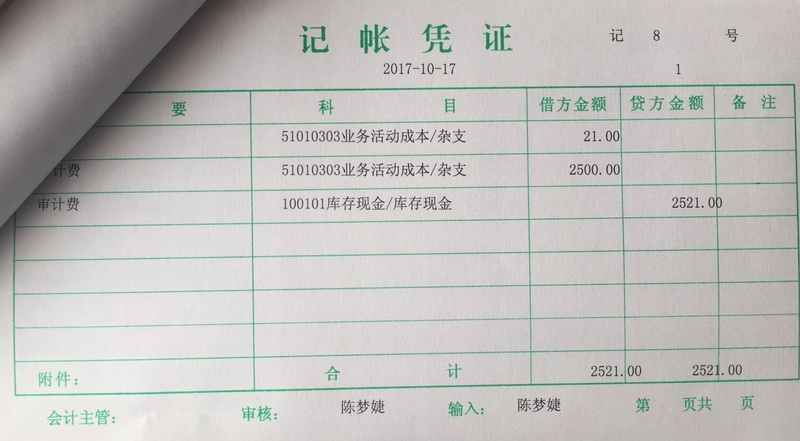 记 帐 凭 证 记 8 号
2017-10-17 1
要 科 目 借方金额 贷方金额 备 注
51010303业务活动成本/杂支 21.00
计费 51010303业务活动成本/杂支 2500.00
审计费 100101库存现金/库存现金 2521.00
附件: 合 计 2521.00 2521.00
会计主管: 审核: 陈梦婕 输入: 陈梦婕 第 页共 页